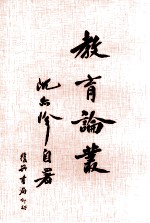 教育論叢
沈亦珍自署
復興書局印行